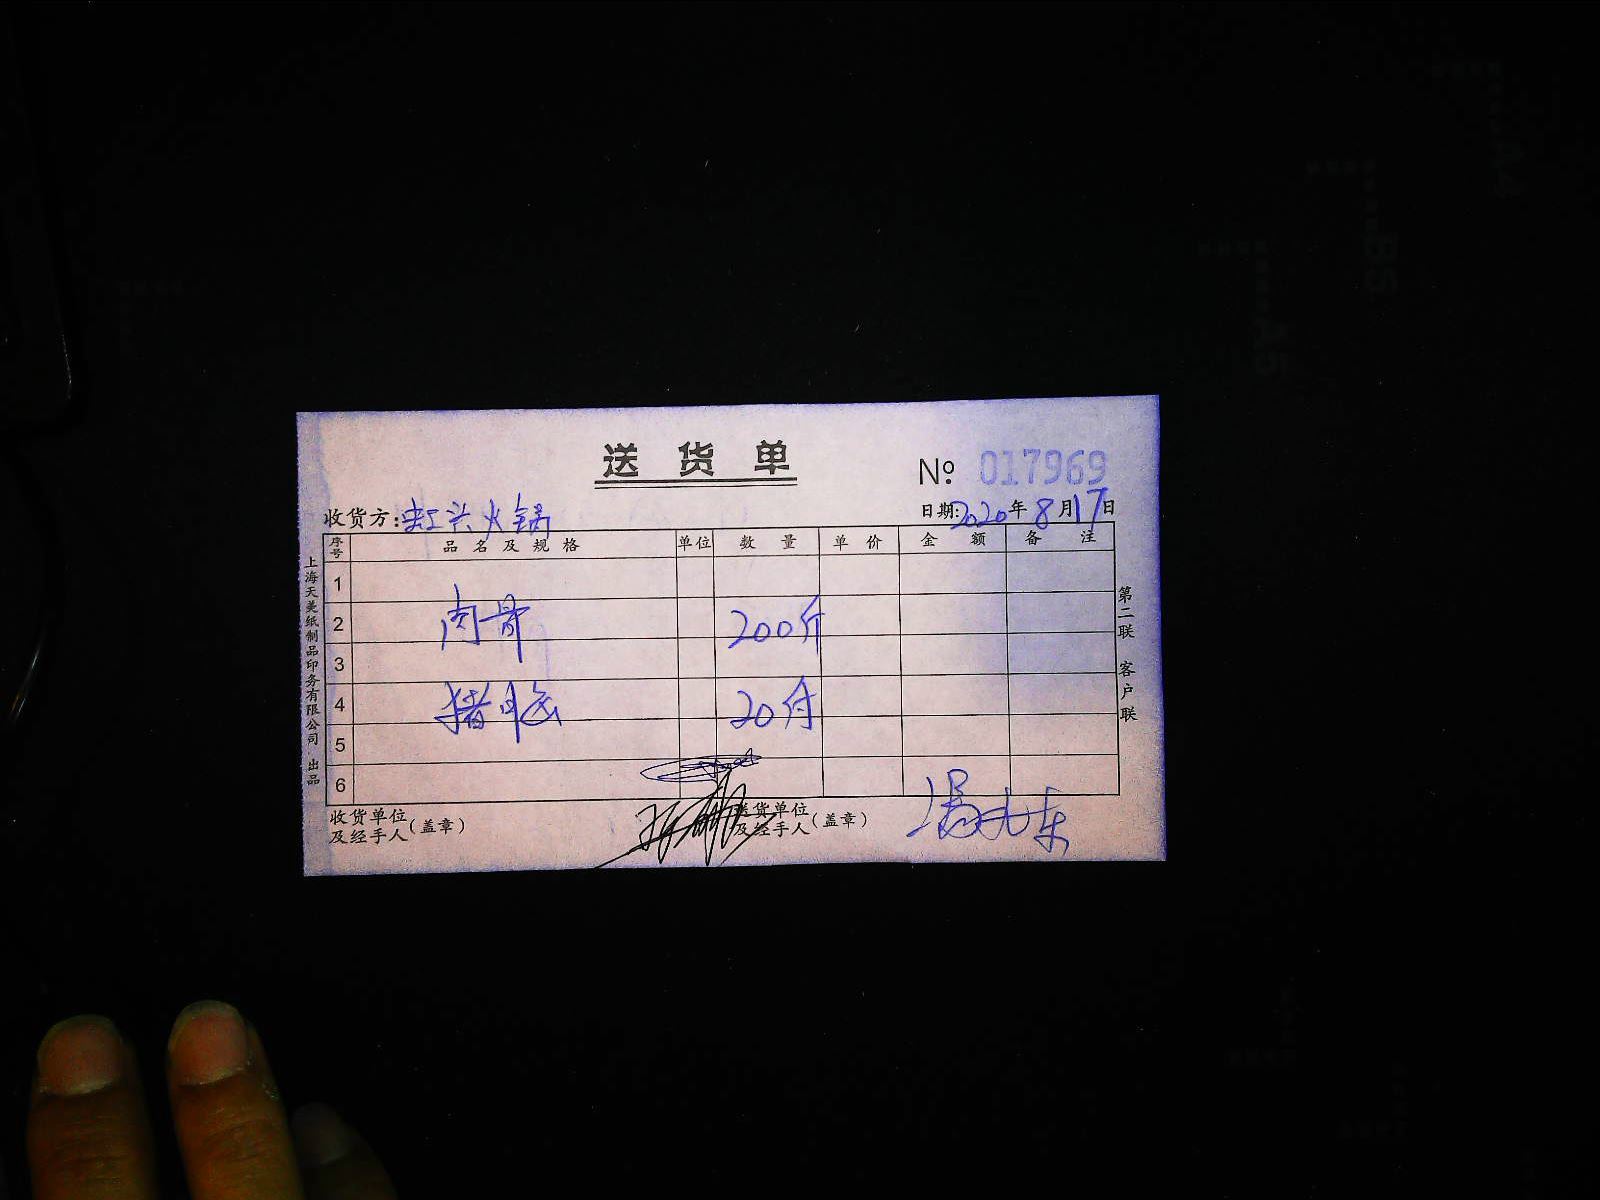 送货单
No. 017969
收货方:虹兴火锅
日期:2020年8月17日
序号 品名及规格 单位 数量 单价 金额 备注
1
2 肉骨 200斤
3
4 猪脑 20付
5
6
收货单位及经手人(盖章)
送货单位及经手人(盖章)
上海天美纸制品印务有限公司 出品
第二联 客户联